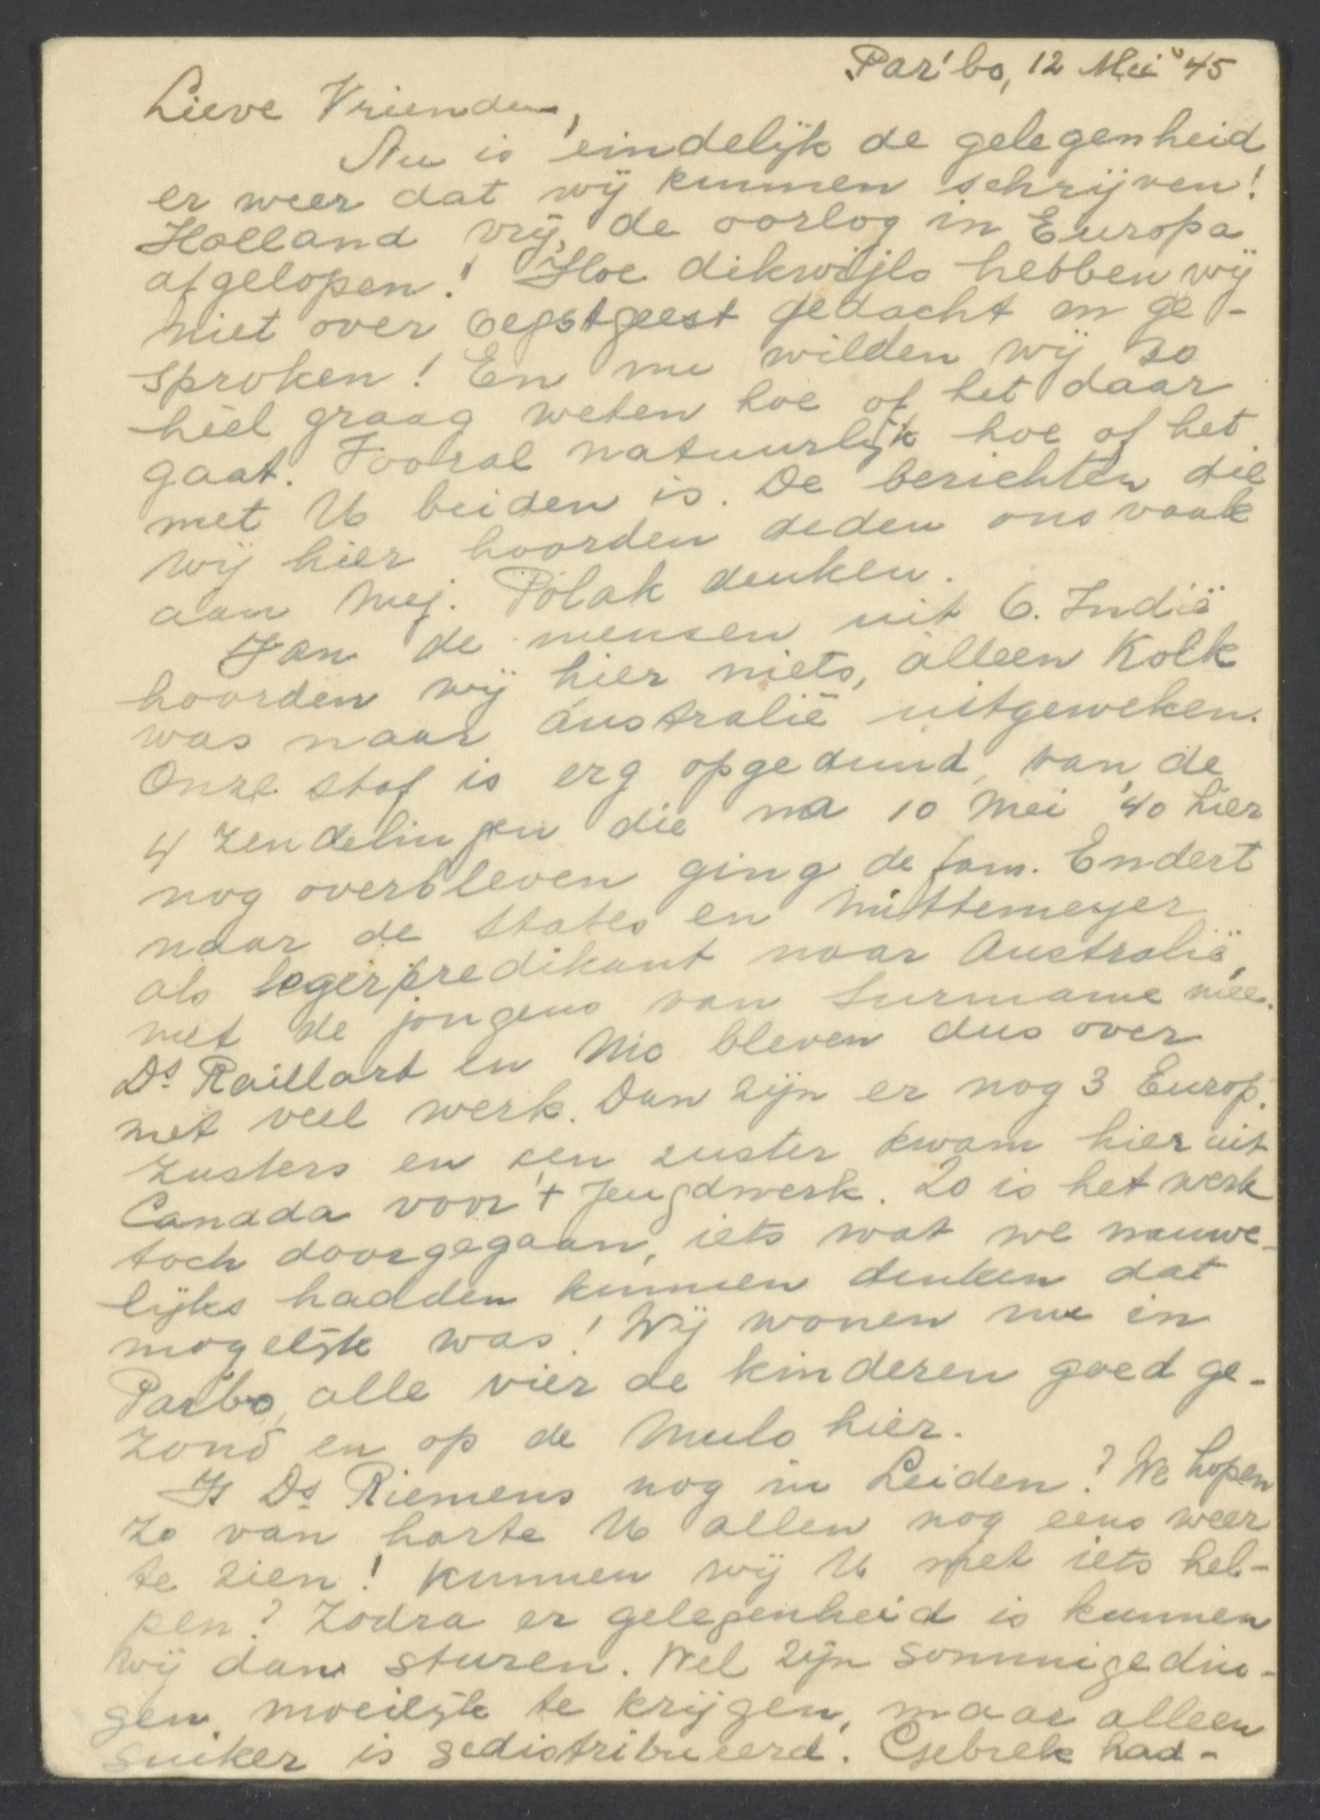 Par'bo, 12 Mei '45
Lieve Vrienden,
Nu is eindelijk de gelegenheid
er weer dat wij kunnen schrijven!
Holland vrij, de oorlog in Europa
afgelopen! Hoe dikwijls hebben wij
niet over Oegstgeest gedacht en ge-
sproken! En nu wilden wij zo
héél graag weten hoe of het daar
gaat. Vooral natuurlijk hoe of het
met U beiden is. De berichten die
wij hier hoorden deden ons vaak
aan Mej. Polak denken.
Van de mensen uit O. Indië
hoorden wij hier niets, alleen Kolk
was naar Australië uitgeweken.
Onze staf is erg opgedund, van de
4 zendelingen die na 10 Mei '40 hier
nog overbleven ging de fam. Endert
naar de States en Mittemeyer
als legerpredikant naar Australië,
met de jongens van Suriname mee.
Ds. Raillard en Nic bleven dus over
met veel werk. Dan zijn er nog 3 Europ.
zusters en een zuster kwam hier uit
Canada voor 't Jeugdwerk. Zo is het werk
toch doorgegaan, iets wat we nauwe-
lijks hadden kunnen denken dat
mogelijk was! Wij wonen nu in
Par'bo, alle vier de kinderen goed ge-
zond en op de Mulo hier.
Is Ds Riemens nog in Leiden? We hopen
zo van harte U allen nog eens weer
te zien! Kunnen wij U met iets hel-
pen? Zodra er gelegenheid is kunnen
wij dan sturen. Wel zijn sommige din-
gen moeilijk te krijgen, maar alleen
suiker is gedistribueerd. Gebrek had-